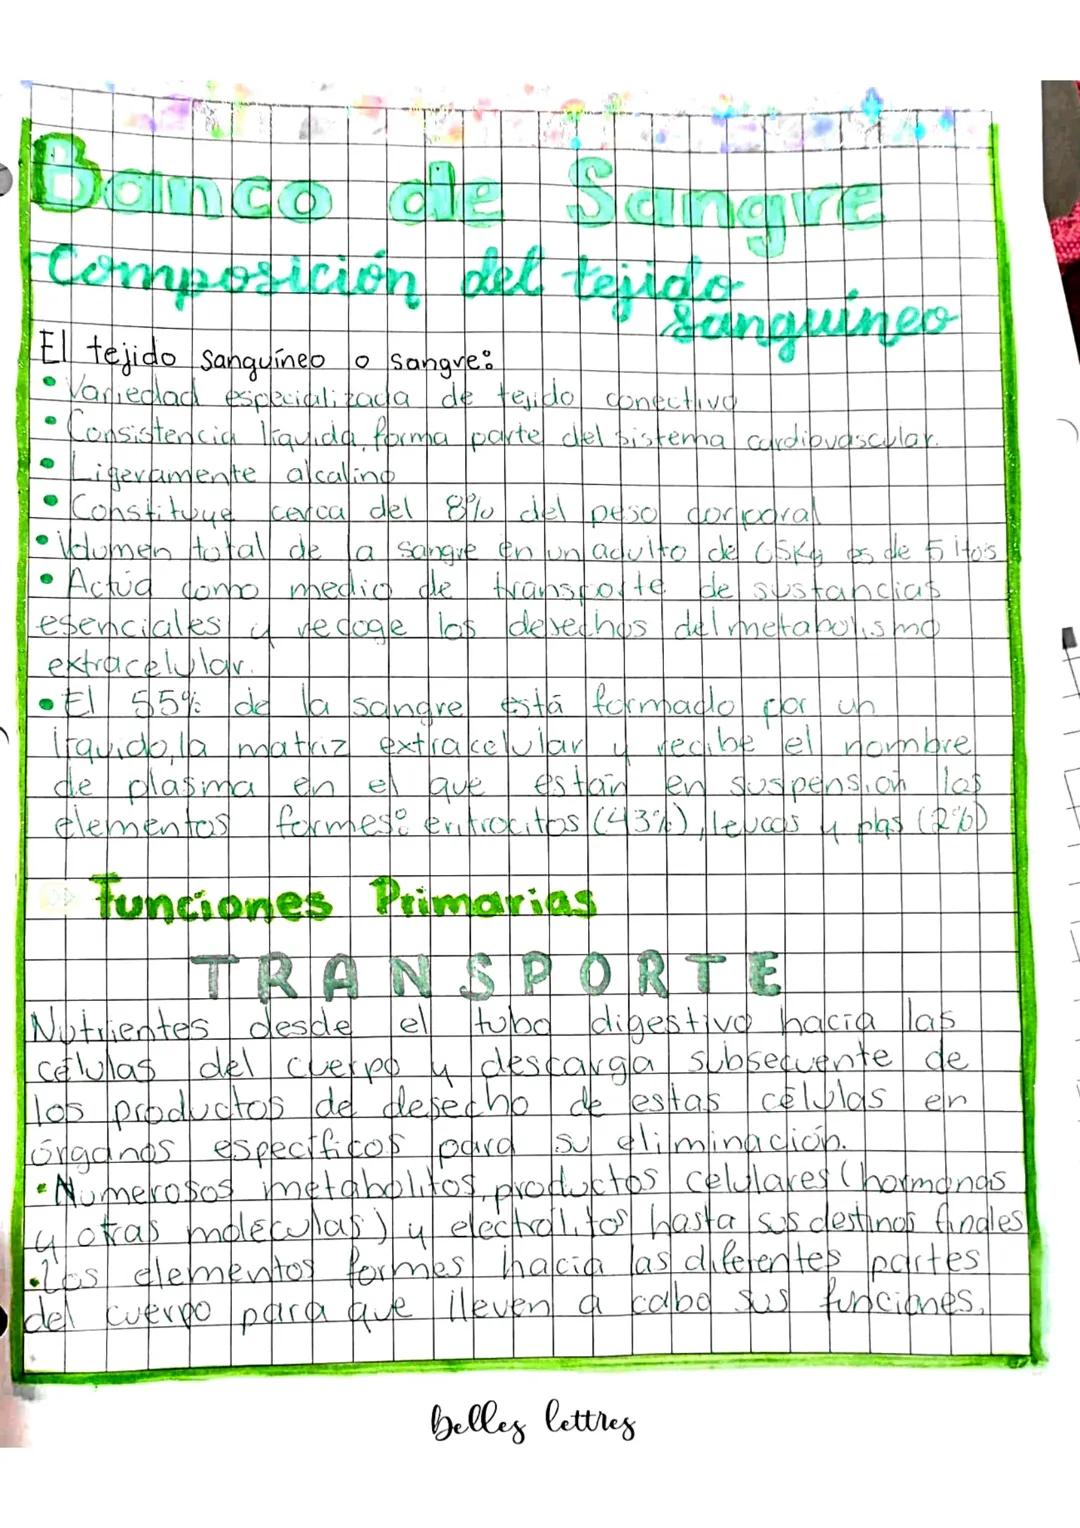 Banco de Sangre
Composición del tejido
sanguíneo
El tejido sanguíneo o sangre:
• Variedad especializada de tejido conectivo
• Consistencia líquida, forma parte del sistema cardiovascular.
• Ligeramente alcalino
• Constituye cerca del 8% del peso corporal
• Volumen total de la sangre en un adulto de 65Kg es de 5 ltos
• Actúa como medio de transporte de sustancias
esenciales y recoge los desechos del metabolismo
extracelular.
• El 55% de la sangre está formado por un
líquido, la matriz extracelular y recibe el nombre
de plasma en el que están en suspensión los
elementos formes: eritrocitos (43%), leucos y plas (2%)
Funciones Primarias
TRANSPORTE
Nutrientes desde el tubo digestivo hacia las
células del cuerpo y descarga subsecuente de
los productos de desecho de estas células en
órganos específicos para su eliminación.
• Numerosos metabolitos, productos celulares (hormonas
y otras moléculas) y electrólitos hasta sus destinos finales
• Los elementos formes hacia las diferentes partes
del cuerpo para que lleven a cabo sus funciones.
belles lettres